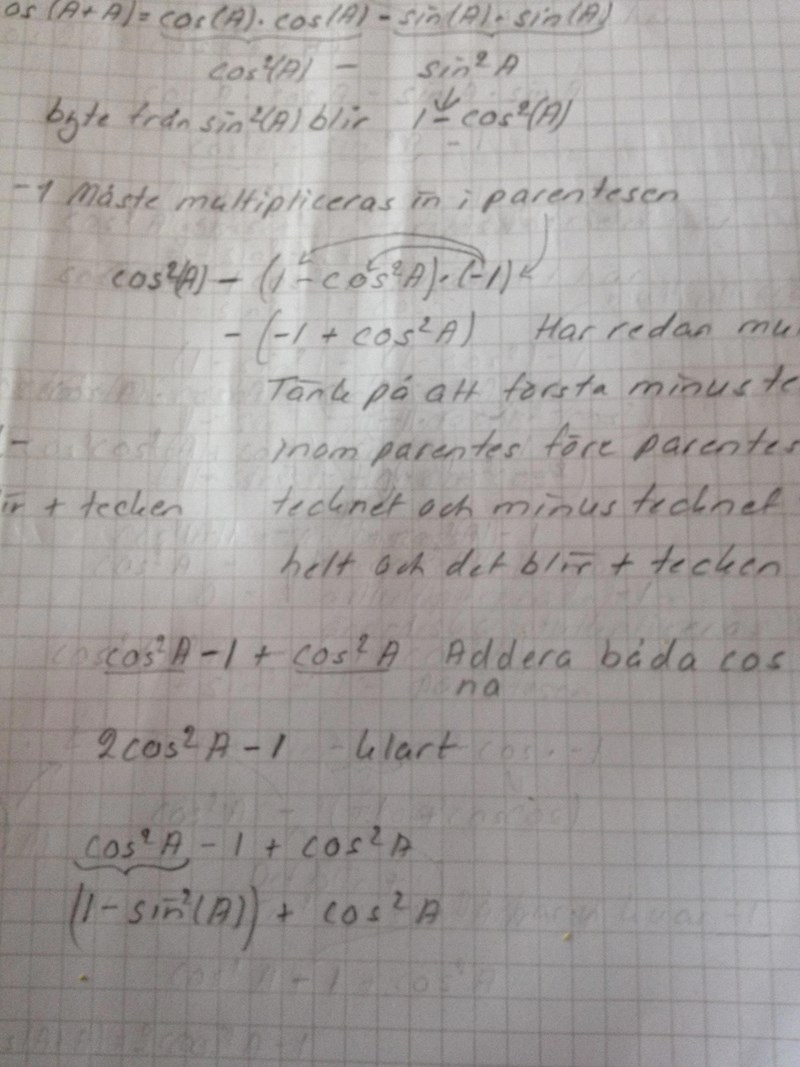 os (A+A) = cos(A) · cos(A) - sin(A) · sin(A)
cos²(A) - sin² A
byte från sin²(A) blir 1 - cos²(A)
-1 Måste multipliceras in i parentesen
cos²(A) - (1 - cos²A) · (-1)
- (-1 + cos²A) Har redan mu
Tänk på att första minuste
inom parentes före parentes
ir + tecken tecknet och minustecknet
helt och det blir + tecken
cos²A - 1 + cos²A Addera båda cos
na
2cos²A - 1 klart
cos²A - 1 + cos²A
(1 - sin²(A)) + cos²A